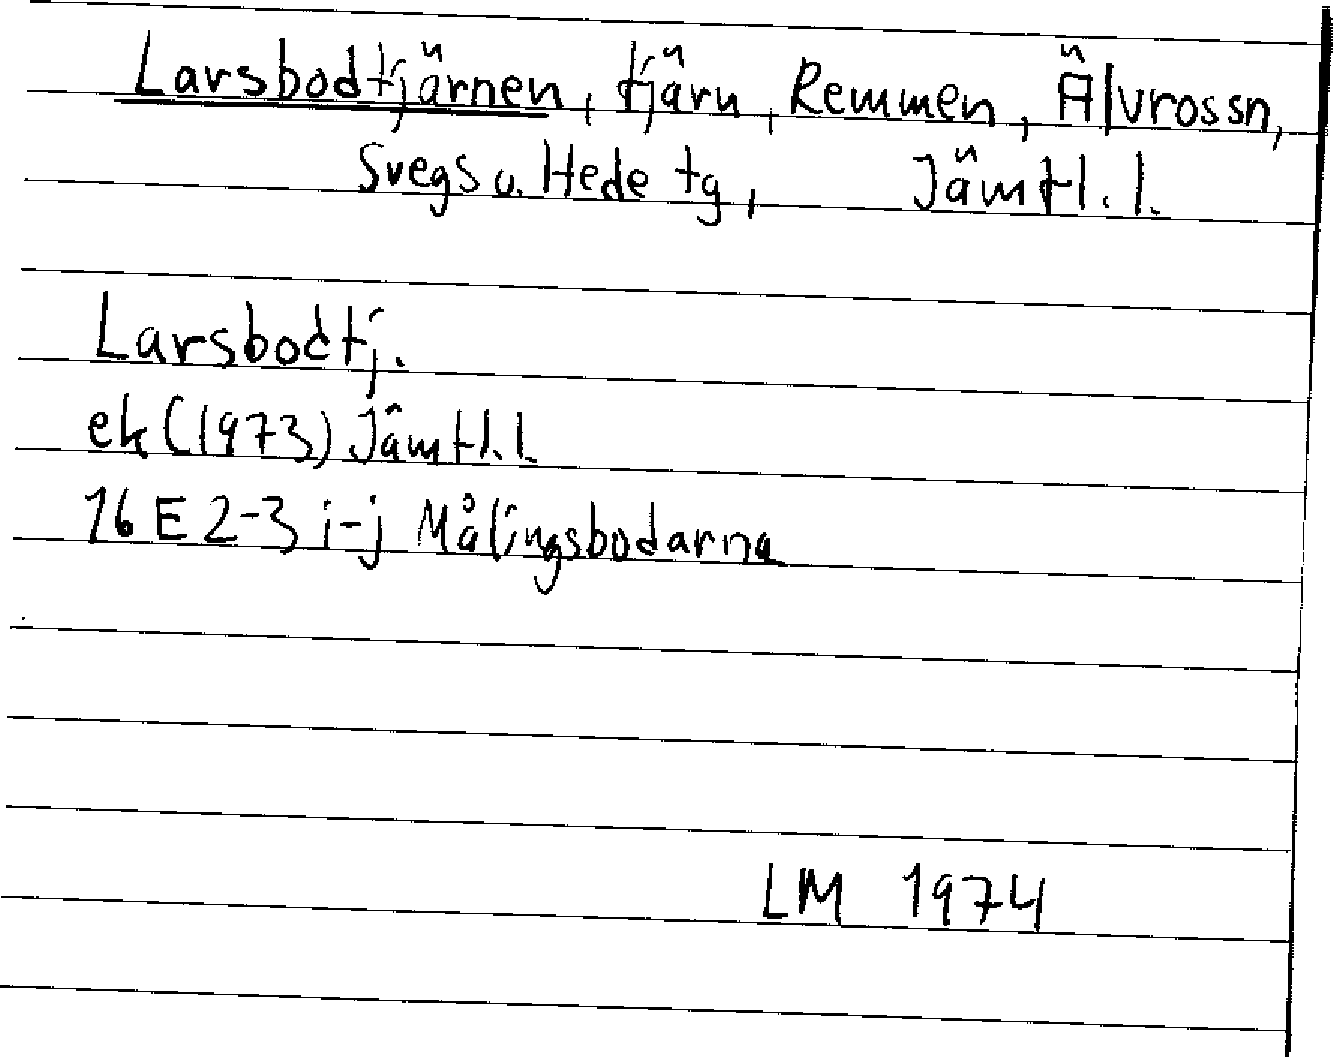 Larsbodtjärnen, tjärn, Remmen, Älvrossn,
Svegs o. Hede tg, Jämtl. l.
Larsbodtj.
ek (1973) Jämtl. l.
16 E 2-3 i-j Målingsbodarna
LM 1974